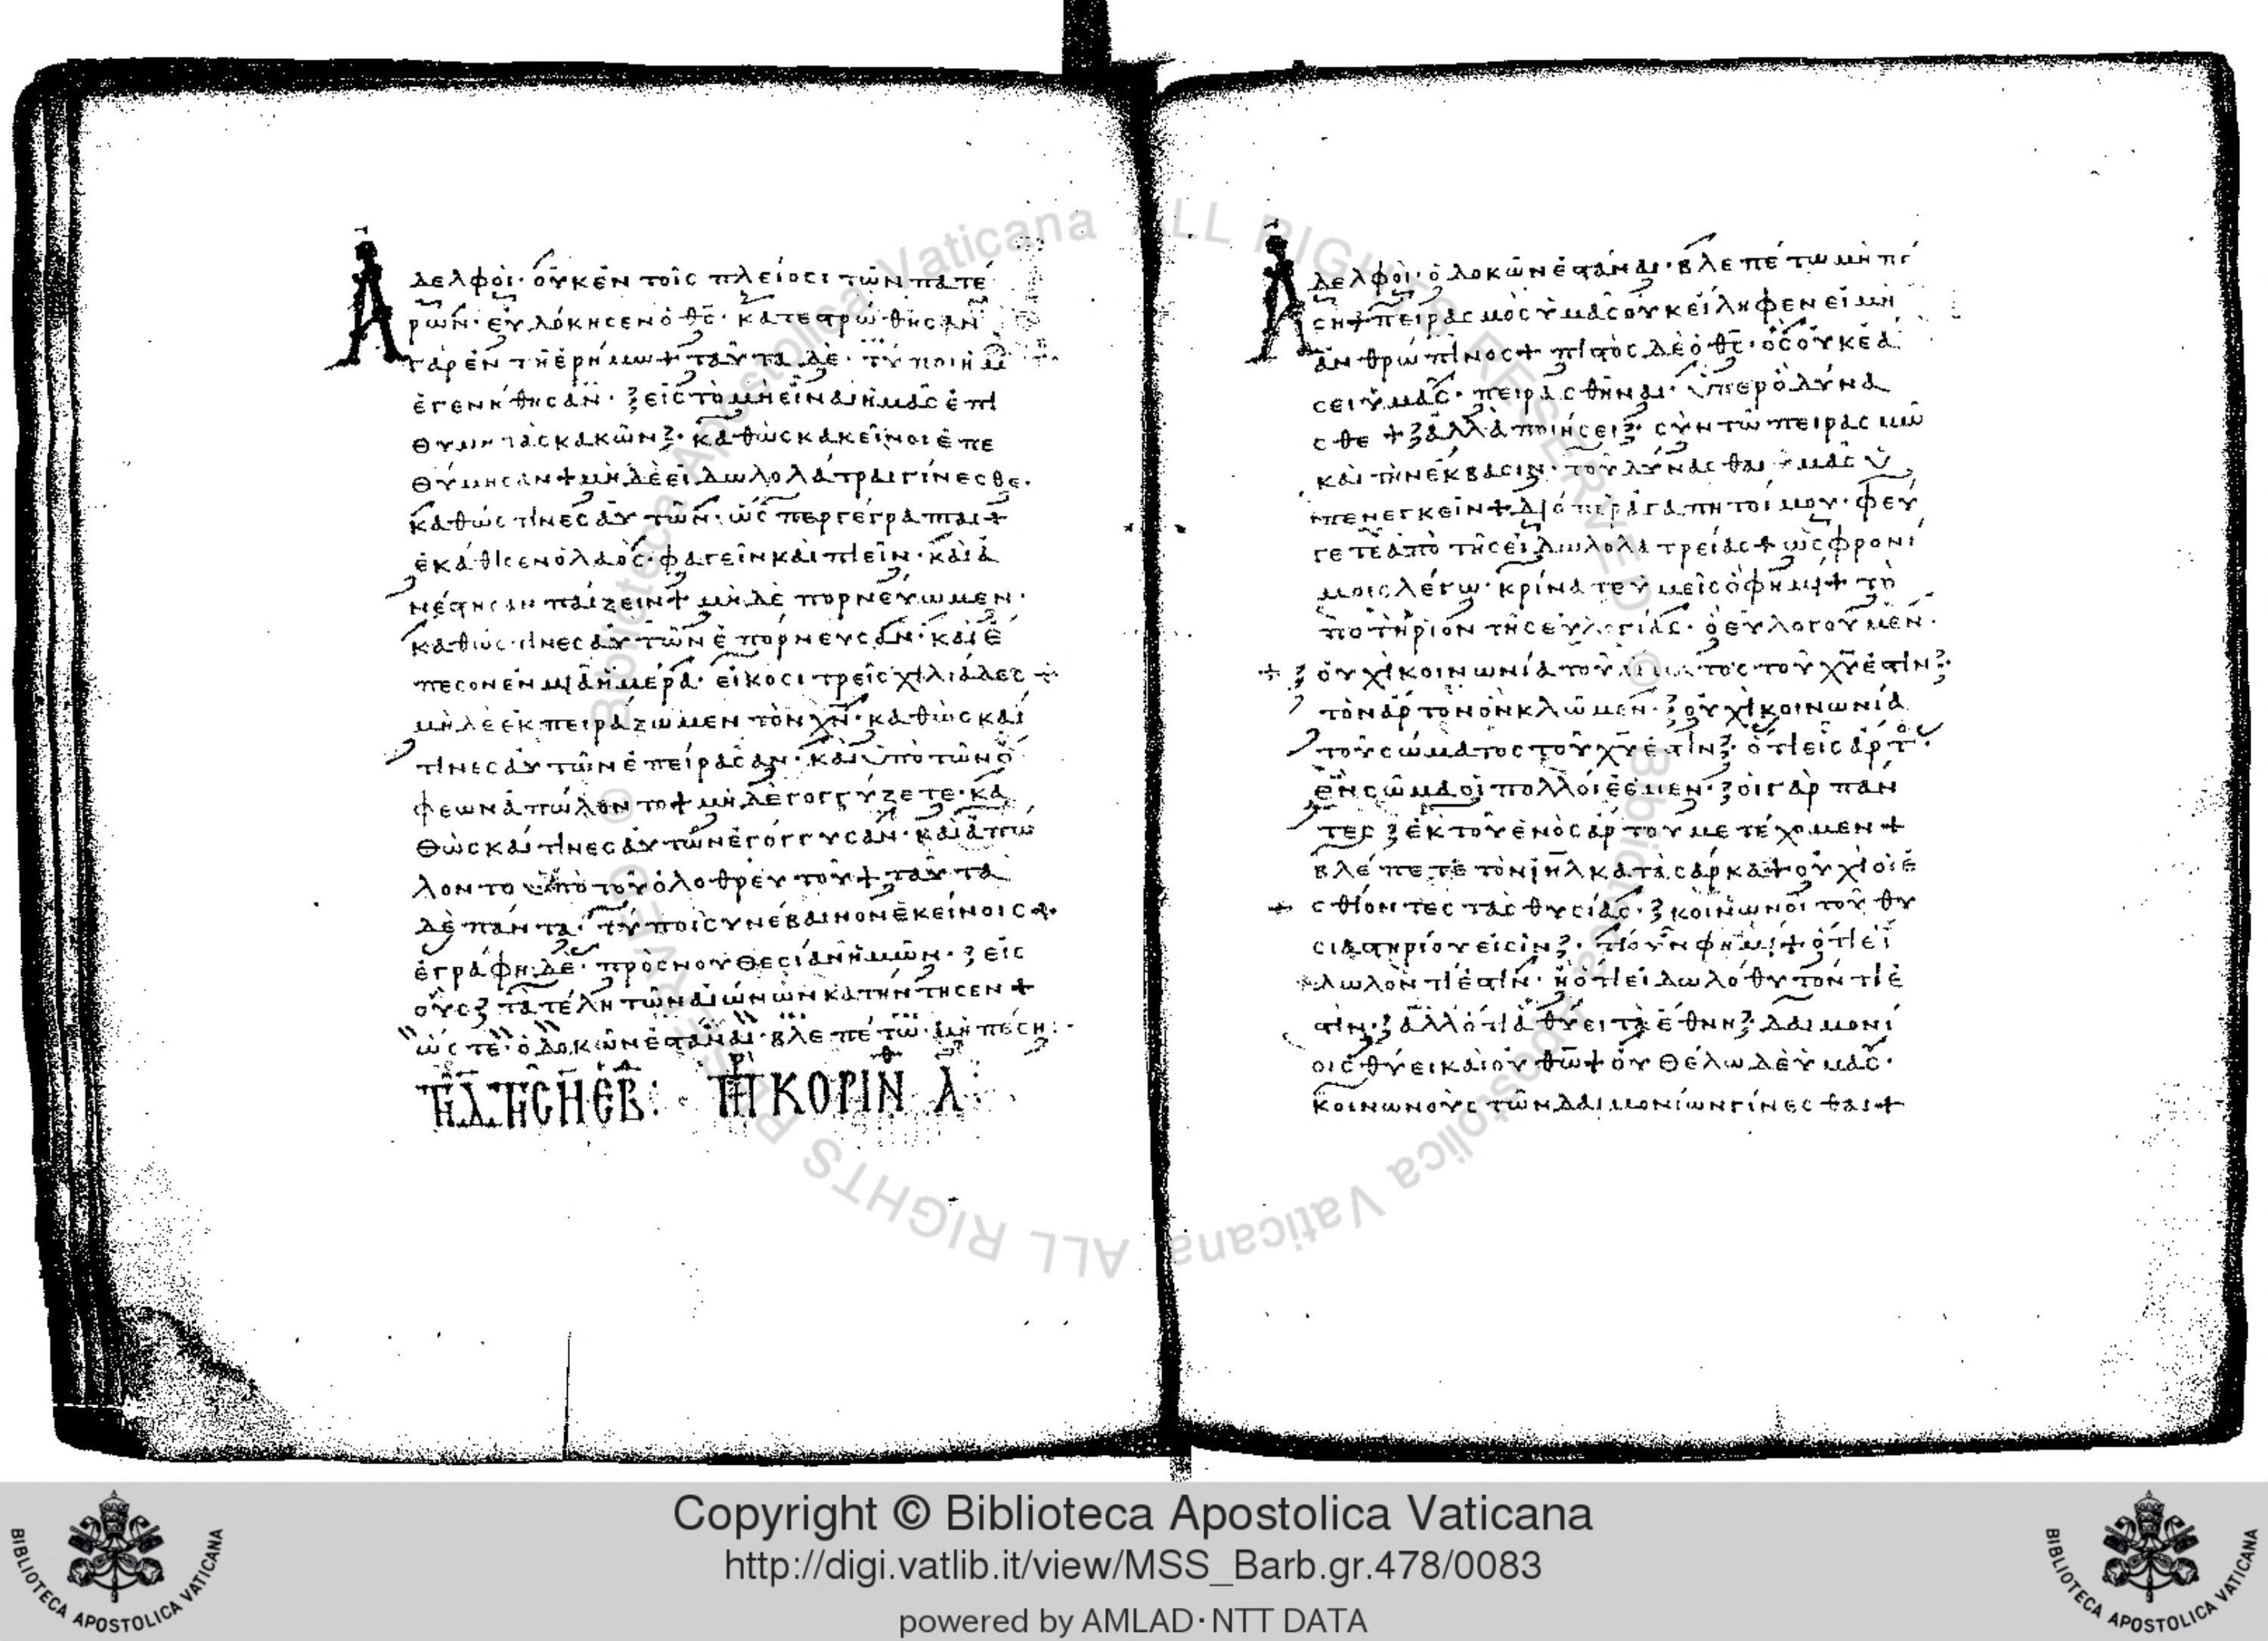 Ἀδελφοὶ· οὐκ ἐν τοῖς πλείοσι τῶν πατέ
ρων· εὐδόκησεν ὁ θς· κατεστρώθησαν
γὰρ ἐν τῆ ἐρήμω + ταῦτα δὲ· τύποι ἡμ
ἐγενήθησαν· εἰς τὸ μὴ εἶναι ἡμᾶς ἐπι
θυμητὰς κακῶν· καθὼς κἀκεῖνοι ἐπε
θύμησαν + μὴ δὲ εἰδωλολάτραι γίνεσθε·
καθώς τινες αὐτῶν· ὡς περ γέγραπται +
ἐκάθισεν ὁ λαὸς· φαγεῖν καὶ πιεῖν· καὶ ἀ
νέστησαν παίζειν + μὴ δὲ πορνεύωμεν·
καθώς τινες αὐτῶν ἐπόρνευσαν· καὶ ἔ
πεσον ἐν μιᾶ ἡμέρα· εἴκοσι τρεῖς χιλιάδες +
μὴ δὲ ἐκπειράζωμεν τὸν χν· καθὼς καί
τινες αὐτῶν ἐπείρασαν· καὶ ὑπὸ τῶν ὄ
φεων ἀπώλοντο + μὴ δὲ γογγύζετε· κα
θὼς καί τινες αὐτῶν ἐγόγγυσαν· καὶ ἀπώ
λοντο ὑπὸ τοῦ ὀλοθρευτοῦ + ταῦτα
δὲ πάντα· τύποι συνέβαινον ἐκείνοις +
ἐγράφη δὲ· πρὸς νουθεσίαν ἡμῶν· εἰς
οὓς τὰ τέλη τῶν αἰώνων κατήντησεν +
ὥστε· ὁ δοκῶν ἑστάναι· βλεπέτω· μὴ πέση:
ΚΟΡΙΝ Α
Ἀδελφοὶ· ὁ δοκῶν ἑστάναι· βλεπέτω μὴ πέ
ση + πειρασμὸς ὑμᾶς οὐκ εἴληφεν εἰ μὴ
ἀνθρώπινος + πιστὸς δὲ ὁ θς· ὃς οὐκ ἐά
σει ὑμᾶς· πειρασθῆναι· ὑπὲρ ὃ δύνα
σθε + ἀλλὰ ποιήσει· σὺν τῶ πειρασμῶ
καὶ τὴν ἔκβασιν· τοῦ δύνασθαι ὑμᾶς ὑ
πενεγκεῖν + διό περ ἀγαπητοί μου· φεύ
γετε ἀπὸ τῆς εἰδωλολατρείας + ὡς φρονί
μοις λέγω· κρίνατε ὑμεῖς ὅ φημι + τὸ
ποτήριον τῆς εὐλογίας· ὃ εὐλογοῦμεν·
+ οὐχὶ κοινωνία τοῦ αἵματος τοῦ χυ ἐστίν·
τὸν ἄρτον ὃν κλῶμεν· οὐχὶ κοινωνία
τοῦ σώματος τοῦ χυ ἐστίν· ὅτι εἷς ἄρτος·
ἓν σῶμα οἱ πολλοί ἐσμεν· οἱ γὰρ πάν
τες ἐκ τοῦ ἑνὸς ἄρτου μετέχομεν +
βλέπετε τὸν ιηλ κατὰ σάρκα + οὐχὶ οἱ ἐ
+ σθίοντες τὰς θυσίας· κοινωνοὶ τοῦ θυ
σιαστηρίου εἰσίν· τί οὖν φημι + ὅτι εἴ
δωλόν τί ἐστίν· ἢ ὅτι εἰδωλόθυτον τί ἐ
στίν· ἀλλ ὅτι ἃ θύει τὰ ἔθνη· δαιμονί
οις θύει καὶ οὐ θω + οὐ θέλω δὲ ὑμᾶς·
κοινωνοὺς τῶν δαιμονίων γίνεσθαι +
© Biblioteca Apostolica Vaticana ALL RIGHTS RESERVED © Biblioteca Apostolica Vaticana ALL RIGHTS RESERVED
Copyright © Biblioteca Apostolica Vaticana
http://digi.vatlib.it/view/MSS_Barb.gr.478/0083
powered by AMLAD·NTT DATA
BIBLIOTECA APOSTOLICA VATICANA
BIBLIOTECA APOSTOLICA VATICANA